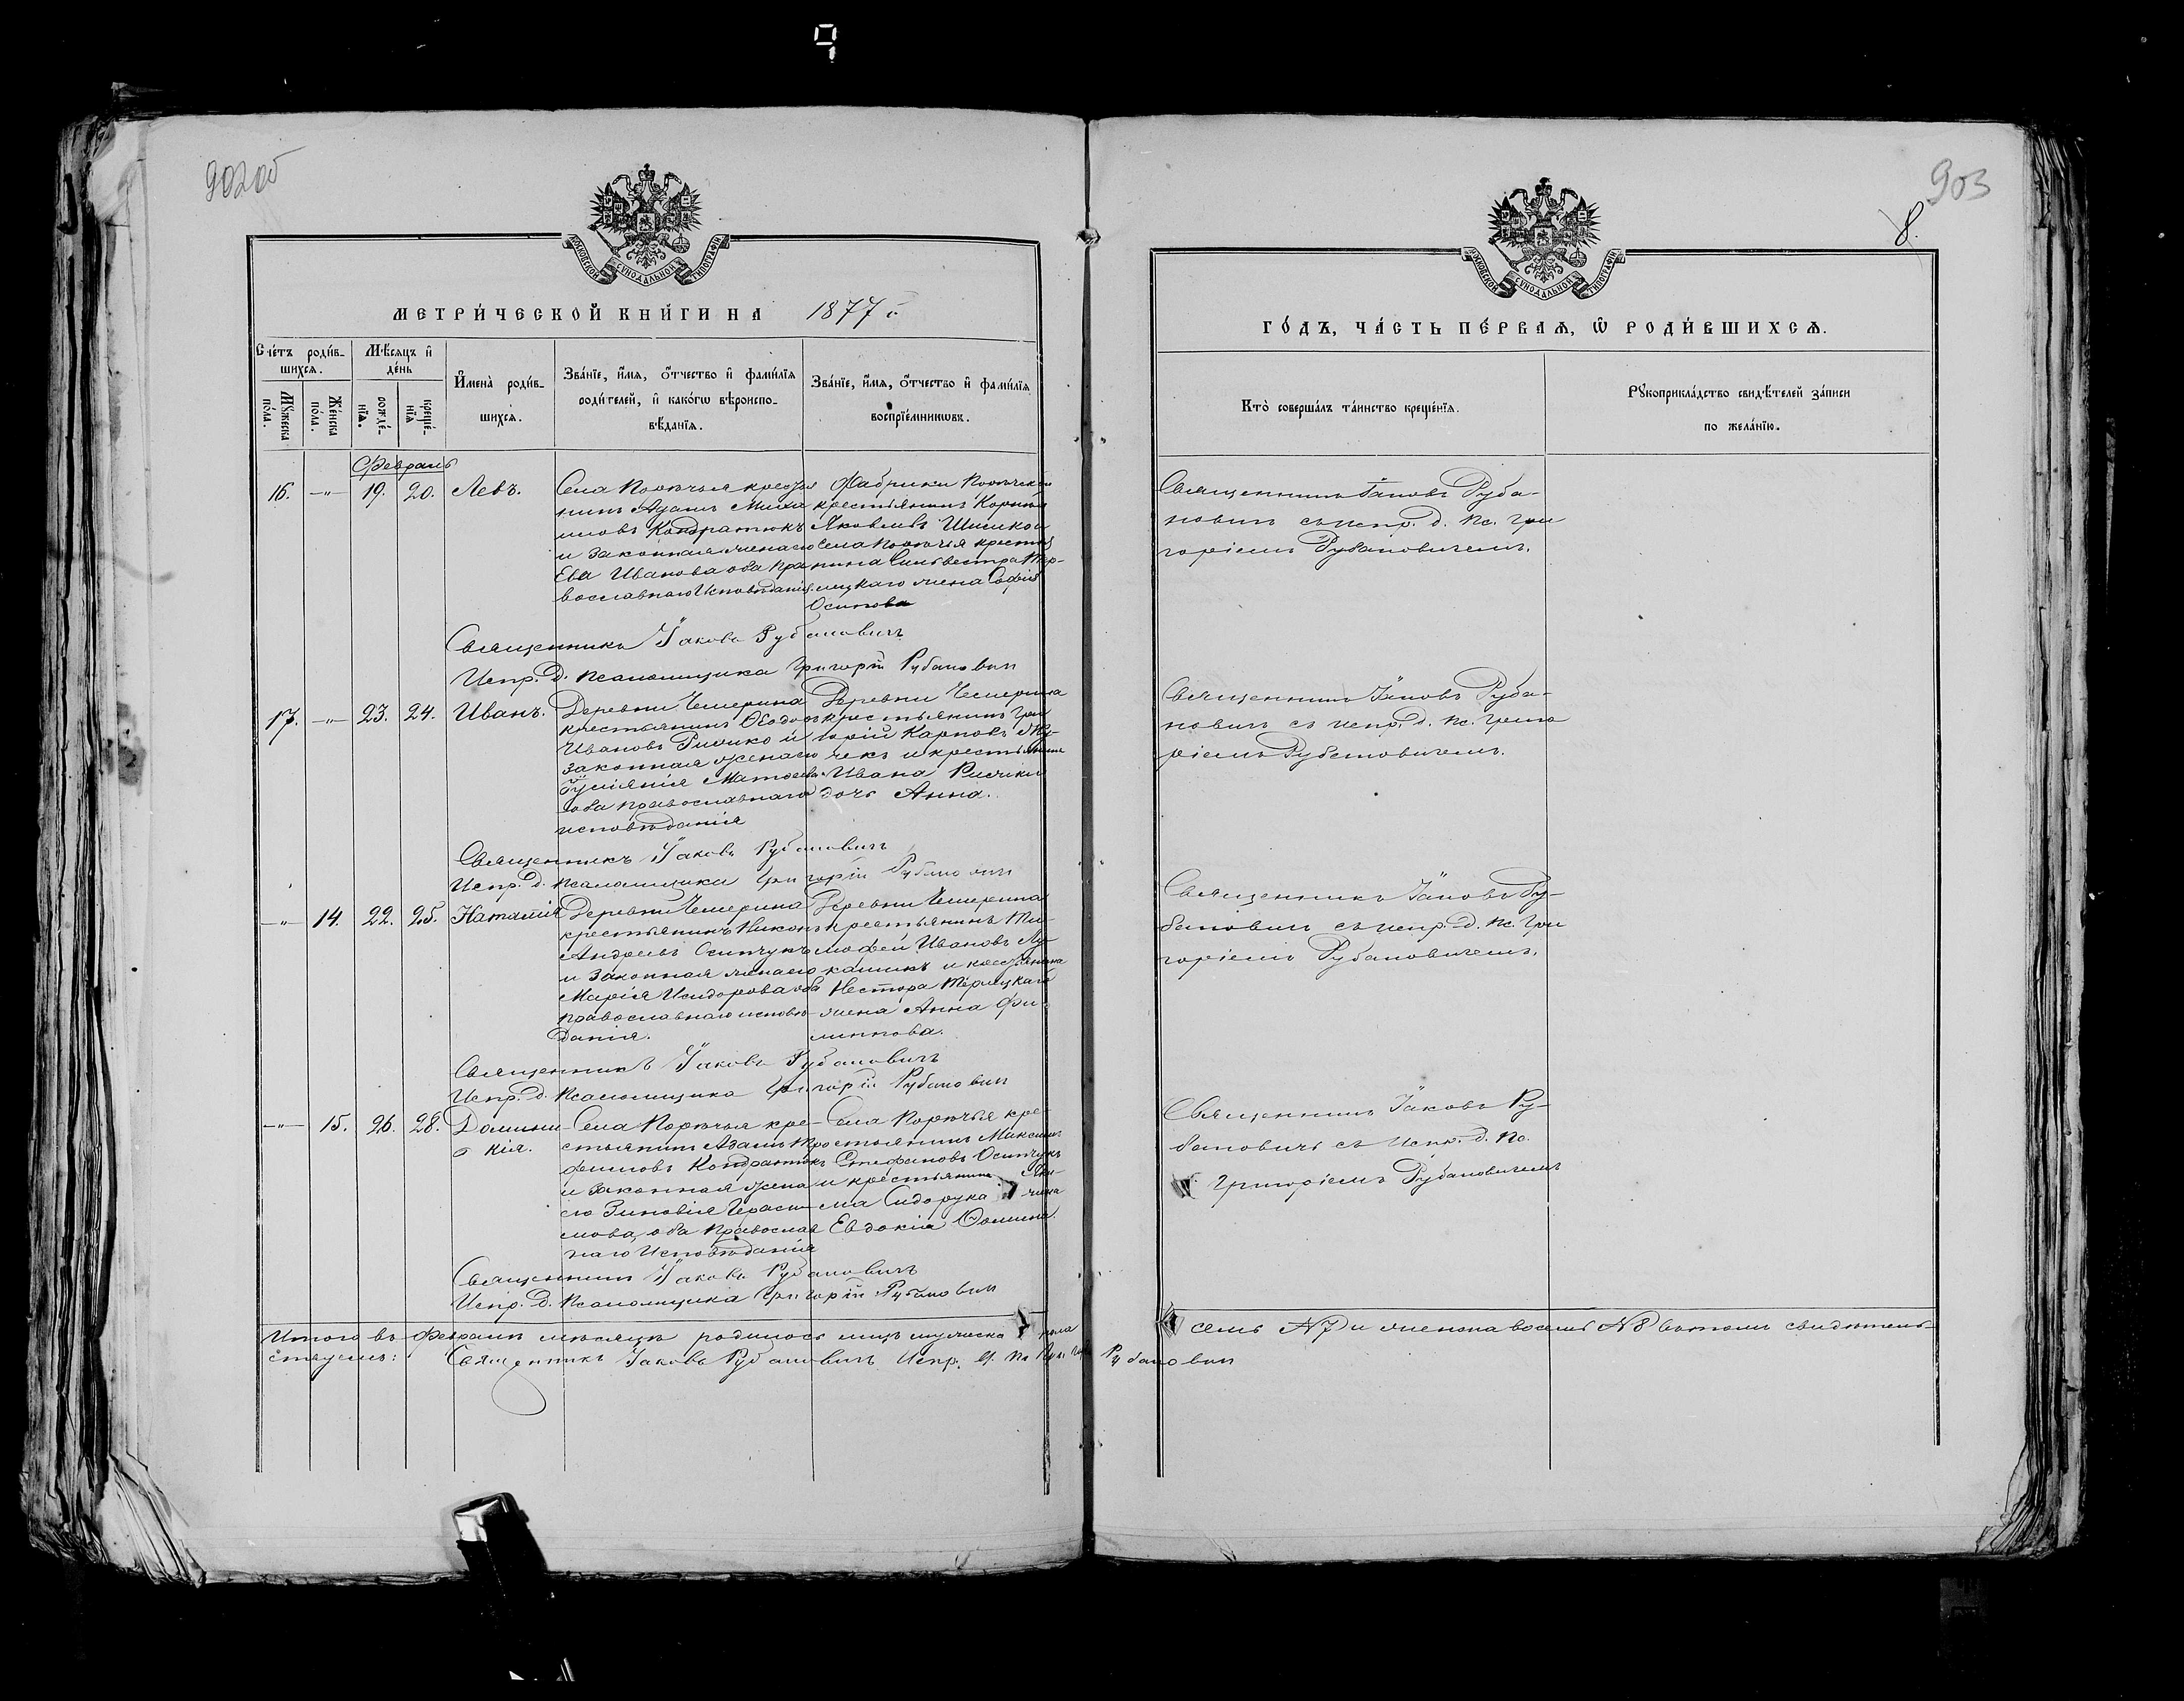 902об
903
8.
МОСКОВСКОЙ СѴНОДАЛЬНОЙ ТИПОГРАФІИ
МОСКОВСКОЙ СѴНОДАЛЬНОЙ ТИПОГРАФІИ
МЕТРИ́ЧЕСКОЙ КНИ́ГИ НА 1877 г.
ГО́ДЪ, ЧА́СТЬ ПЕ́РВАЯ, Ѡ РОДИ́ВШИХСЯ.
Сче́тъ роди́в-
шихся.
Мꙋжеска
по́ла.
Же́нска
по́ла.
Мѣ́сяцъ и
де́нь
рожде́-
нїя.
креще́-
нїя
Имена̀ роди́в-
шихся.
Зва́нїе, имя, отчество и фами́лїя
роди́телей, и како́гѡ вѣроиспо-
вѣ́данїя.
Зва́нїе, имя, отчество и фами́лїя
воспрїе́мникѡвъ.
Кто̀ соверша́лъ та́инство креще́нїя.
Рꙋкоприкла́дство свидѣ́телей за́писи
по жела́нїю.
Февраль
16. —"— 19. 20. Левъ.
Села Порѣчья крестья
нинъ Адамъ Миха
иловъ Кондратюкъ
и законная жена его
Ева Иванова оба пра
вославнаго Исповѣданія.
Фабрики Порѣчской
крестьянинъ Корнилій
Яковлевъ
и Села Порѣчья крестья
нина Сильвестра Тер-
лецкаго жена Софія
Осипова
Священникъ Іаковъ Руба-
новичъ съ испр. д. пс. Гри
горіемъ Рубановичемъ.
Священникъ Іаковъ Рубановичъ
Испр. д. псаломщика Григорій Рубановичъ
17. —"— 23. 24. Иванъ.
Деревни Чемерина
крестьянинъ Ѳеодоръ
Ивановъ и
законная жена его
Матѳеева
оба православнаго
исповѣданія
Деревни Чемерина
крестьянинъ Гри
горій Карповъ
и крестьянина
Ивана
дочь Анна.
Священникъ Іаковъ Руба-
новичъ съ испр. д. пс. Григо
ріемъ Рубановичемъ.
Священникъ Іаковъ Рубановичъ
Испр. д. псаломщика Григорій Рубановичъ
—"— 14. 22. 25. Наталія
Деревни Чемерина
крестьянинъ Никонъ
Андреевъ Осипчукъ
и законная жена его
Марія Исидорова оба
православнаго исповѣ-
данія.
Деревни Чемерина
крестьянинъ Ти-
мофей Ивановъ
и крестьянина
Нестора Терлецкаго
жена Анна Фи-
липпова.
Священникъ Іаковъ Ру-
бановичъ съ испр. д. пс. Гри
горіемъ Рубановичемъ.
Священникъ Іаковъ Рубановичъ
Испр. д. псаломщика Григорій Рубановичъ
—"— 15. 26. 28. Домни-
кія.
Села Порѣчья кре-
стьянинъ Адамъ Тро
фимовъ Кондратюкъ
и законная жена
его Зиновія Гераси-
мова, оба православ
наго Исповѣданія
Села Порѣчья кре-
стьянинъ Максимъ
Стефановъ Осипчукъ
и крестьянина
Сидорука жена
Евдокія Ѳомина.
Священникъ Іаковъ Ру-
бановичъ съ испр. д. пс.
Григоріемъ Рубановичемъ
Священникъ Іаковъ Рубановичъ
Испр. д. псаломщика Григорій Рубановичъ
Итого въ Февралѣ мѣсяцѣ родилось лицъ мужеска пола семь № 7 и женска восемь № 8 въ томъ свидѣтель-
ствуемъ: Священникъ Іаковъ Рубановичъ Испр. д. Пс. Григорій Рубановичъ